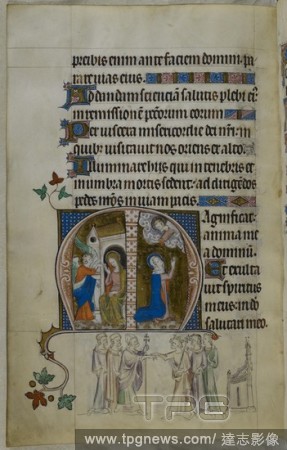 precibis enim ante faciem domini pa
rare vias eius.
Ad dandam scienciam salutis plebi ei9
in remissionem peccatorum eorum
Per viscera misericordie dei nri in
quib9 visitavit nos oriens ex alto.
Illuminare hiis qui in tenebris et
in umbra mortis sedent: ad dirigendos
pedes nros in viam pacis.
Magnificat
anima me
a dominum.
Et exulta
vit spiritus
meus: in deo
salutari meo.
TPG
www.tpgnews.com / 達志影像